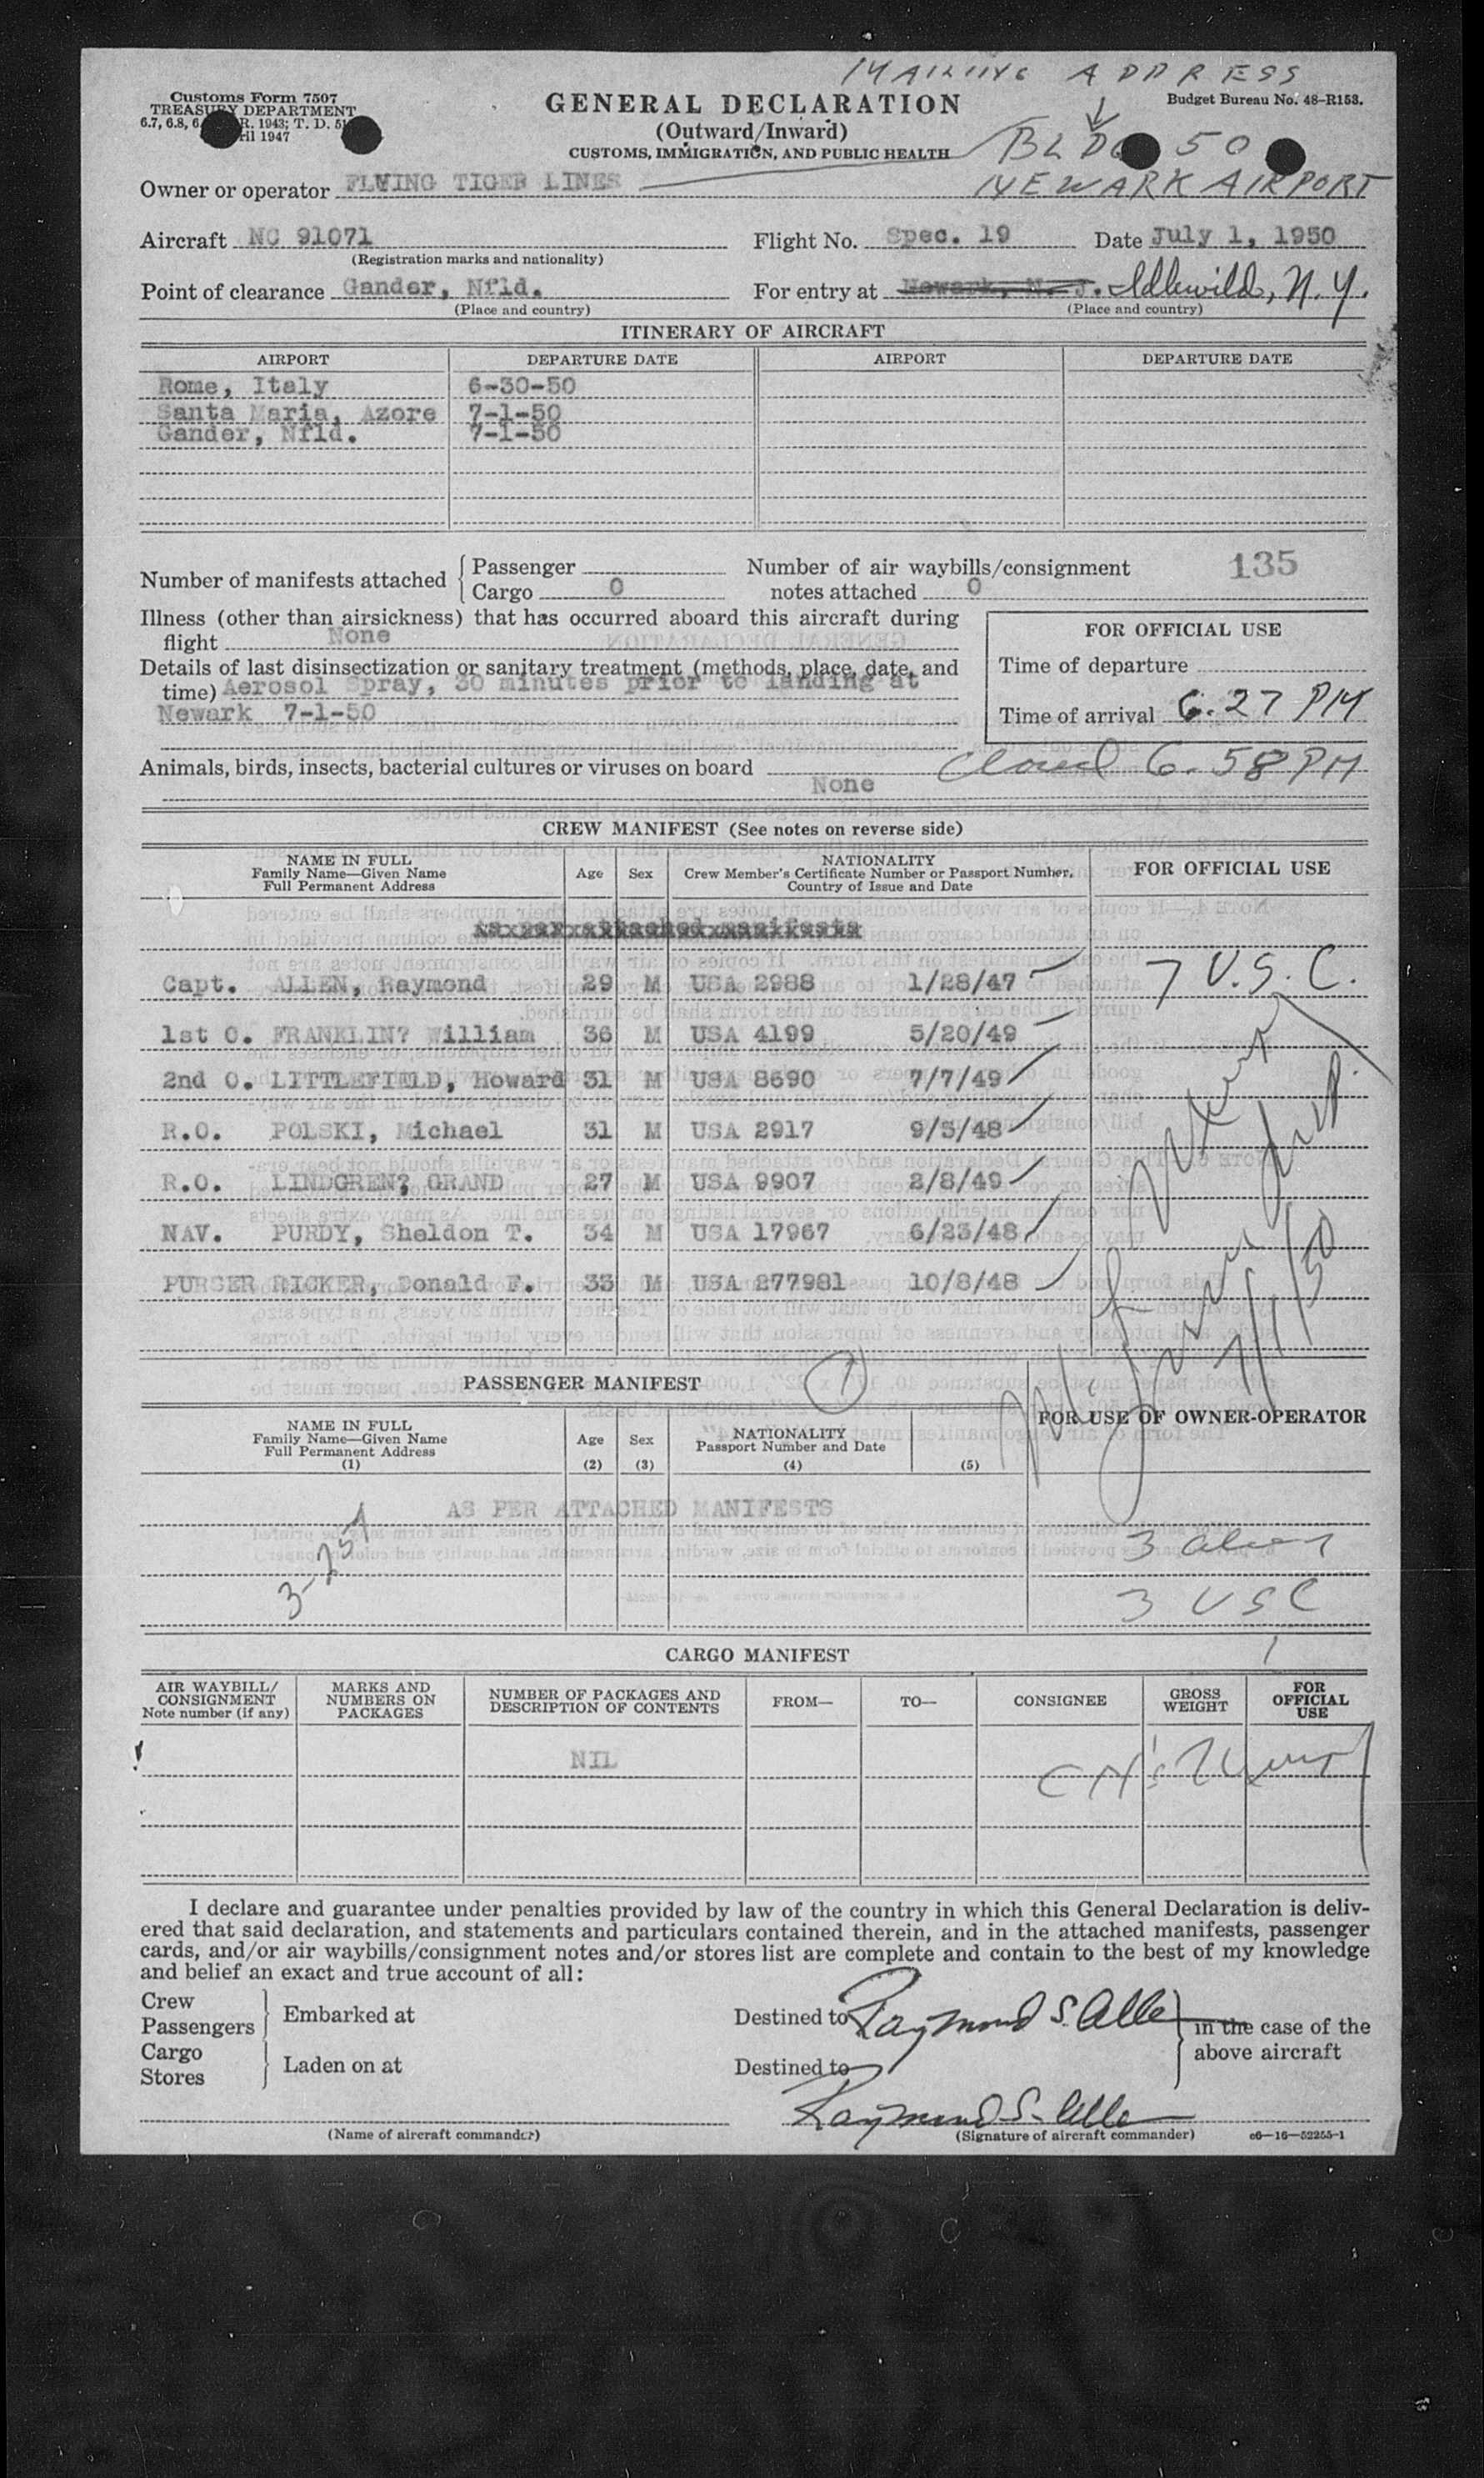 MAILING ADDRESS
Customs Form 7507
TREASURY DEPARTMENT
6.7, 6.8, 6. R. 1943; T. D. 51
ril 1947
GENERAL DECLARATION
(Outward/Inward)
CUSTOMS, IMMIGRATION, AND PUBLIC HEALTH
Budget Bureau No. 48-R153.
BLDG 50
NEWARK AIRPORT
Owner or operator FLYING TIGER LINES
Aircraft NC 91071 Flight No. Spec. 19 Date July 1, 1950
(Registration marks and nationality)
Point of clearance Gander, Nfld. For entry at Newark, N. J. Idlewild, N.Y.
(Place and country) (Place and country)
ITINERARY OF AIRCRAFT
AIRPORT DEPARTURE DATE AIRPORT DEPARTURE DATE
Rome, Italy 6-30-50
Santa Maria, Azore 7-1-50
Gander, Nfld. 7-1-50
Number of manifests attached { Passenger Number of air waybills/consignment 135
Cargo 0 notes attached 0
Illness (other than airsickness) that has occurred aboard this aircraft during
flight None
Details of last disinsectization or sanitary treatment (methods, place, date, and
time) Aerosol Spray, 30 minutes prior to landing at
Newark 7-1-50
FOR OFFICIAL USE
Time of departure
Time of arrival 6.27 PM
Closed 6.58 PM
Animals, birds, insects, bacterial cultures or viruses on board
None
CREW MANIFEST (See notes on reverse side)
NAME IN FULL
Family Name—Given Name
Full Permanent Address
Age Sex
NATIONALITY
Crew Member's Certificate Number or Passport Number,
Country of Issue and Date
FOR OFFICIAL USE
Capt. ALLEN, Raymond 29 M USA 2988 1/28/47
7 U.S.C.
1st O. FRANKLIN? William 36 M USA 4199 5/20/49
2nd O. LITTLEFIELD, Howard 31 M USA 8690 7/7/49
R.O. POLSKI, Michael 31 M USA 2917 9/3/48
R.O. LINDGREN? GRAND 27 M USA 9907 2/8/49
NAV. PURDY, Sheldon T. 34 M USA 17967 6/23/48
PURSER RICKER, Donald F. 33 M USA 277981 10/8/48
7/1/50
PASSENGER MANIFEST 1
NAME IN FULL
Family Name—Given Name
Full Permanent Address
(1)
Age
(2)
Sex
(3)
NATIONALITY
Passport Number and Date
(4) (5)
FOR USE OF OWNER-OPERATOR
AS PER ATTACHED MANIFESTS
3 alien
3 USC
CARGO MANIFEST
AIR WAYBILL/
CONSIGNMENT
Note number (if any)
MARKS AND
NUMBERS ON
PACKAGES
NUMBER OF PACKAGES AND
DESCRIPTION OF CONTENTS
FROM— TO— CONSIGNEE
GROSS
WEIGHT
FOR
OFFICIAL
USE
NIL
I declare and guarantee under penalties provided by law of the country in which this General Declaration is deliv-
ered that said declaration, and statements and particulars contained therein, and in the attached manifests, passenger
cards, and/or air waybills/consignment notes and/or stores list are complete and contain to the best of my knowledge
and belief an exact and true account of all:
Crew
Passengers } Embarked at Destined to Raymond S. Alle
Cargo
Stores } Laden on at Destined to
in the case of the
above aircraft
Raymond S. Alle
(Name of aircraft commander) (Signature of aircraft commander) c6—16—52255-1